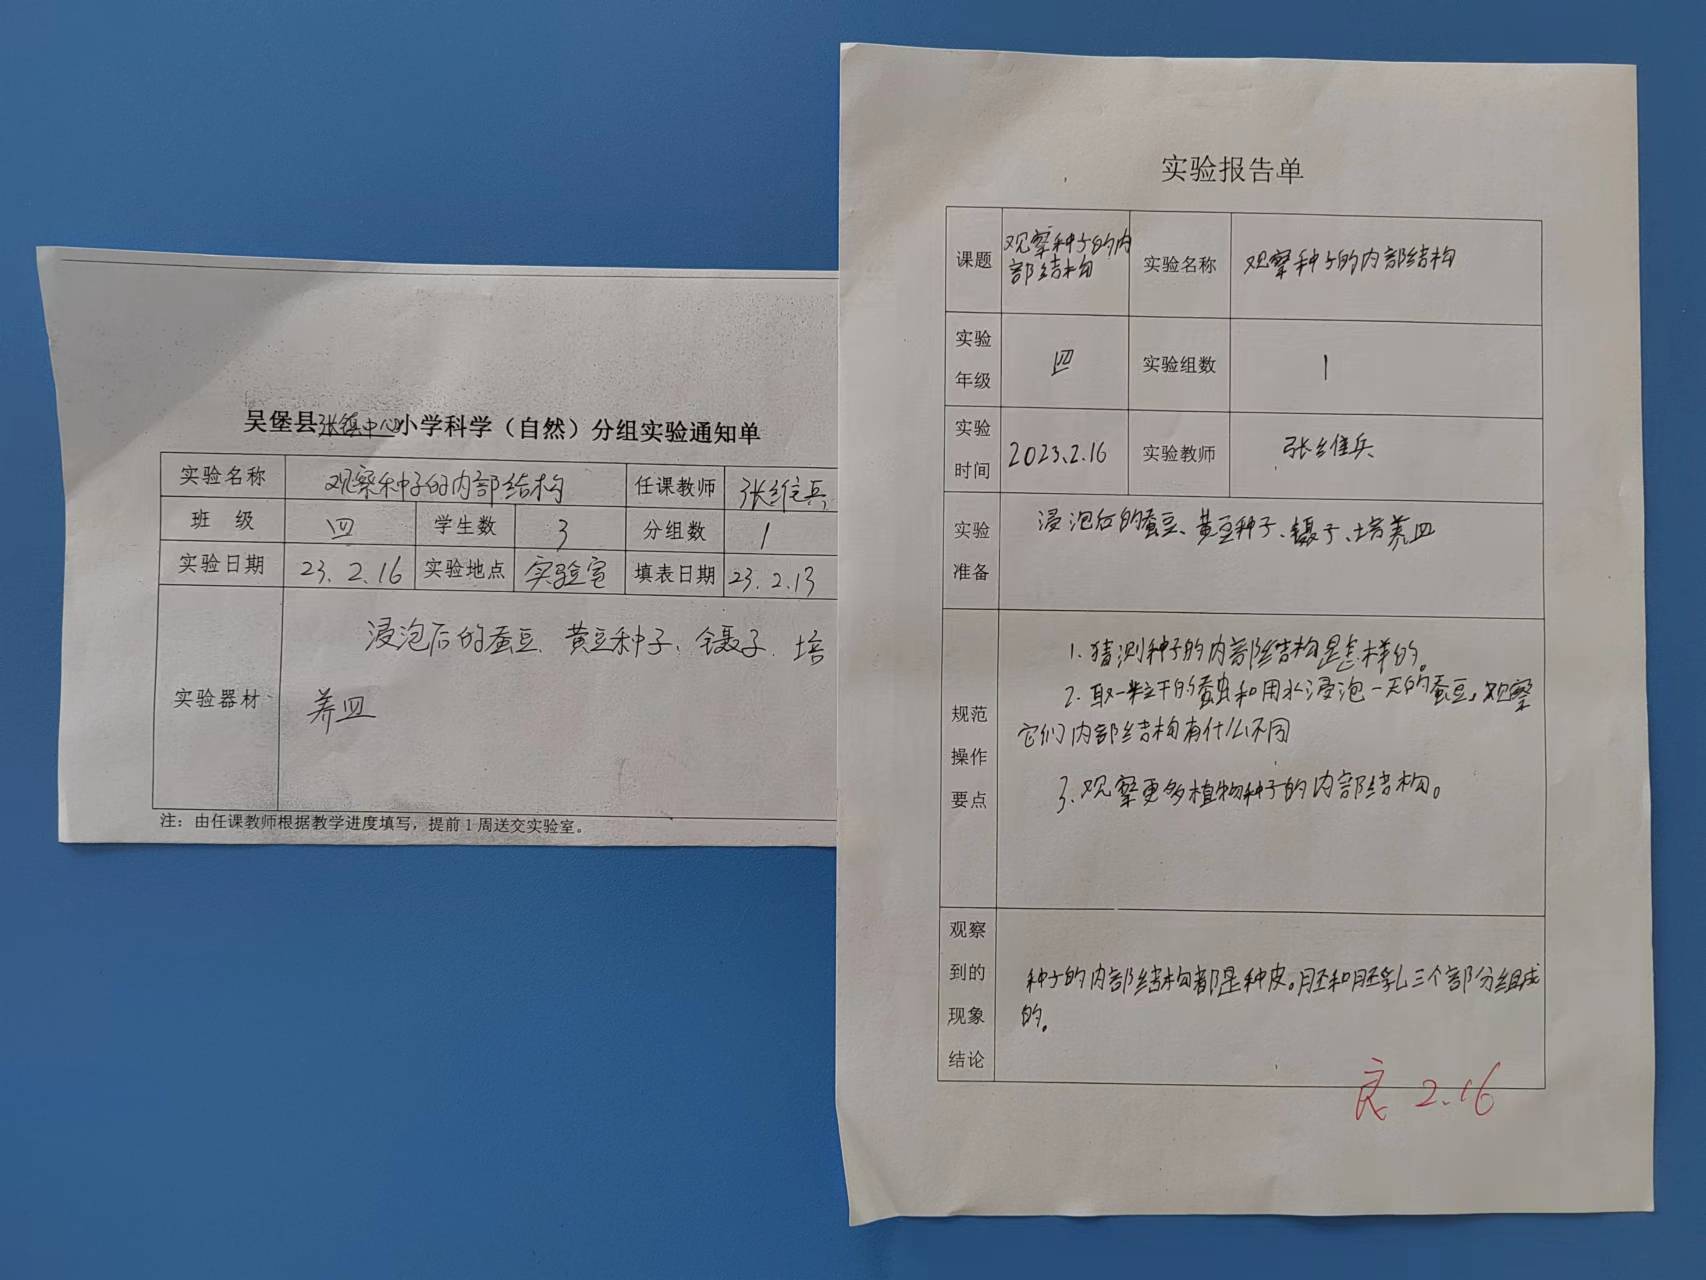 吴堡县张镇中心小学科学（自然）分组实验通知单
实验名称 观察种子的内部结构 任课教师 张维兵
班 级 四 学生数 3 分组数 1
实验日期 23.2.16 实验地点 实验室 填表日期 23.2.13
实验器材 浸泡后的蚕豆、黄豆种子、镊子、培
养皿
注：由任课教师根据教学进度填写，提前1周送交实验室。
实验报告单
课题 观察种子的内
部结构 实验名称 观察种子的内部结构
实验
年级 四 实验组数 1
实验
时间 2023.2.16 实验教师 张维兵
实验
准备 浸泡后的蚕豆、黄豆种子、镊子、培养皿
规范
操作
要点
1. 猜测种子的内部结构是怎样的。
2. 取一粒干的蚕虫和用水浸泡一天的蚕豆，观察
它们内部结构有什么不同
3. 观察更多植物种子的内部结构。
观察
到的
现象
结论
种子的内部结构都是种皮。胚和胚乳三个部分组成
的。
良 2.16